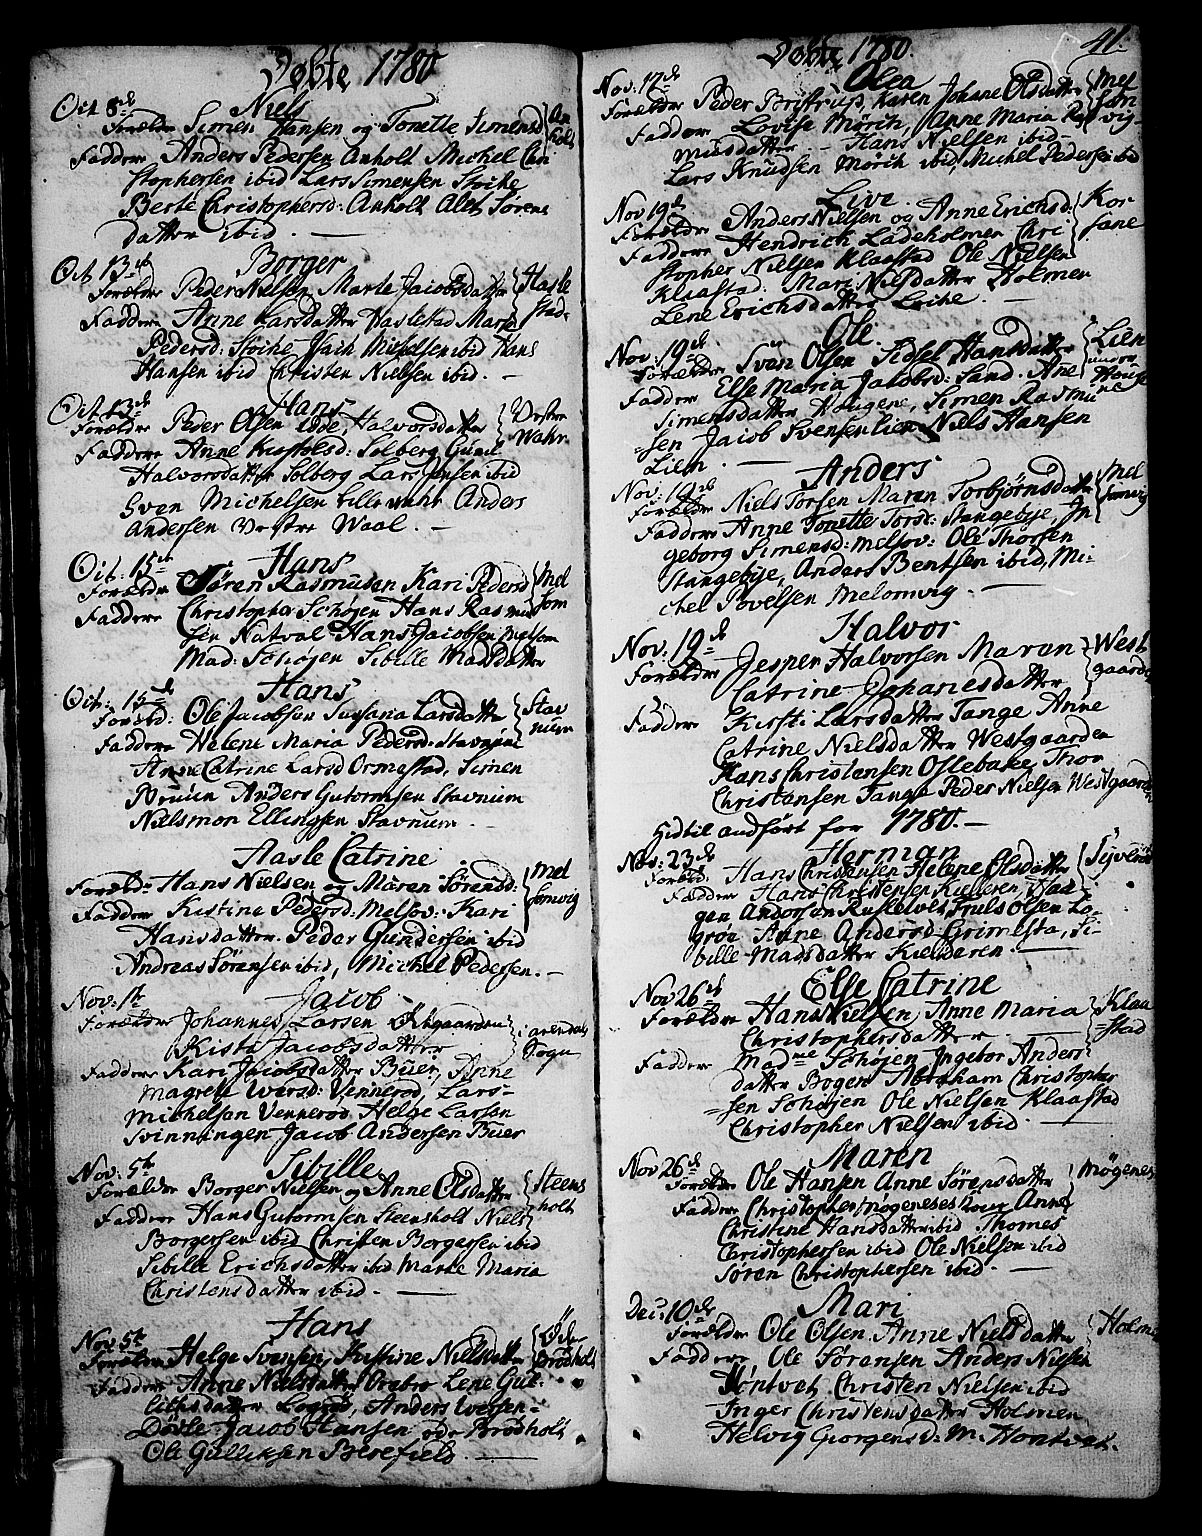 Døbte 1780
Oct 8de Niels
Forældre Simen Hansen og Tonette Simensd An
Faddere Anders Pedersen Anholt Michel Chri holt
stophersen ibid Lars Simensen Stoike
Berte Christophersd: Anholt Alet Sørens
datter ibid. —
Oct 13de Borger
Forældre Peder Nielsen, Marte Jacobsdatter Hasle
Faddere Anne Larsdatter Haslestad Maren stad-
Pedersd: Stoike Jach Michelsen ibid Hans
Hansen ibid Christen Nielsen ibid. -
Oct 13de Hans
Forældre Peder Olsen Edde, Halvorsdatter Vestre
Faddere Anne Solberg Guni Wahr.
Halvorsdatter Solberg Lars Jensen ibid
Sven Michelsen Lille wahr Anders
Andersen Vestre Waal. -
Oct: 15de Hans
Forældre Søren Rasmusen Kari Pedersd Mel
Faddere Christopher Schøjen Hans Rasmu som
sen Natval Hans Jacobsen Melsom
Mad: Schøjen Sibille Madsdatter
Oct: 15de Hans
Foræld: Ole Jacobsen Sussana Larsdatter Stav
Faddere Helene Maria Pedersd: Stavnum num
Anne Catrine Larsd Ormestad, Simen
Bruun Anders Gutormsen Stavnum
Nielsmon Ellingsen Stavnum. -
Aasle Catrine
Foræld: Hans Nielsen og Maren Sørensd: Mel
Faddere Kistine Pedersd: Melsov: Kari somvig
Hansdatter. Peder Gundersen ibid
Andreas Sørensen ibid, Michel Pedersen. —
Nov: 1te Jacob
Forældre Johannes Larsen i arendals
Kisti Jacobsdatter Sogn
Faddere Kari Jacobsdatter Buer, Anne
Magrete Iversd: Vennerød, Lars-
Michelsen Vennerød Helge Larsen
Svinningen Jacob Andersen Buer
Nov: 5te Sibille
Forældre Borger Nielsen og Anne Olsdatter Steens
Faddere Hans Gutormsen Steensholt Niels holt
Borgersen ibid Christen Borgersen ibid
Sibille Erichsdatter ibid Marte Maria
Christensdatter ibid. —
Hans
Nov: 5te
Forældre Helge Svensen, Kistine Nielsdatter Øde-
Faddere Anne Nielsdatter Orebro Lene Gul- Brødholt
lichsdatter Legrød, Anders Iversen-
Døvle Jacob Hansen øde Brødholt
Ole Gullichsen Berefield. —
Døbte 1780. 41.
Nov. 17de Olea
Forældre Peder Bristrup, Karen Johane Olsdatter Mel
Faddere Lovise Mørch, Anne Maria Ras som
musdatter - Hans Nielsen ibid- vig-
Lars Knudsen Mørch ibid, Michel Pedersen ibid
Nov 19de Live.
Forældre Anders Nielsen og Anne Erichsd: Kor
Faddere Hendrick Ladeholmen Chri sane
stopher Nielsen Klaastad Ole Nielsen
Klaastad: Mari Nielsdatter Holmen
Lene Erichsdatter Leike. —
Nov: 19de Ole.
Forældre Sven Olsen Sidsel Hansdatter Lien
Faddere Else Maria Jacobsd: Sand. Ane under
Simensdatter Hougene, Simen Rasmu Houge
=sen Jacob Svensen Lien Niels Hansen ne
Lien. —
Nov: 19de Anders
Forældre Niels Torsen Maren Torbjørnsdatter Mel
Faddere Anne Tonette Torsd: Stangebye, In somvig
geborg Simensd: Melsov: Ole Thorsen
Stangebye, Anders Bentsen ibid, Mi-
chel Povelsen Melomvig. —
Nov: 19de Halvor
Forældre Jesper Halvorsen Maren West
Catrine Johanesdatter gaarde
Faddere Kirsti Larsdatter Tange Anne
Catrine Nielsdatter Westgaarden
Hans Christensen Ollebake, Thor
Christensen Tange Peder Nielsen Westgaarden
Hidtil andført for 1780. —
Nov: 23de Herman
Foræld: Hans Christensen Helene Olsdatter
Faddere Hans Christensen Kielleren, Haa-
gen Andersen Truls Olsen Lo-
grøe Anne Andersd: Grimesta, Si-
bille Madsdatter Kielderen —
Nov 26de Else Catrine
Forældre Hans Nielsen Anne Maria Klaa
Christophersdatter — =stad
Faddere Madme Schøjen Ingebor Anders
datter Bogen Abraham Christopher
=sen Schøjen Ole Nielsen Klaastad
Christopher Nielsen ibid. —
Nov 26de Maren
Forældre Ole Hansen Anne Sørensdatter Møgenes
Faddere Christopher Møgeneses kone Anne
Christine Hansdatter ibid Thomes
Christophersen ibid Ole Nielsen ibid
Søren Christophersen ibid. —
Dec: 10de Mari
Forældre Ole Olsen Anne Nielsdatter Holme
Faddere, Ole Sørensen Anders Nielsen
Hontvet, Christen Nielsen ibid
Inger Christensdatter Holmen
Helvig Giorgens d: M. Hontvet.